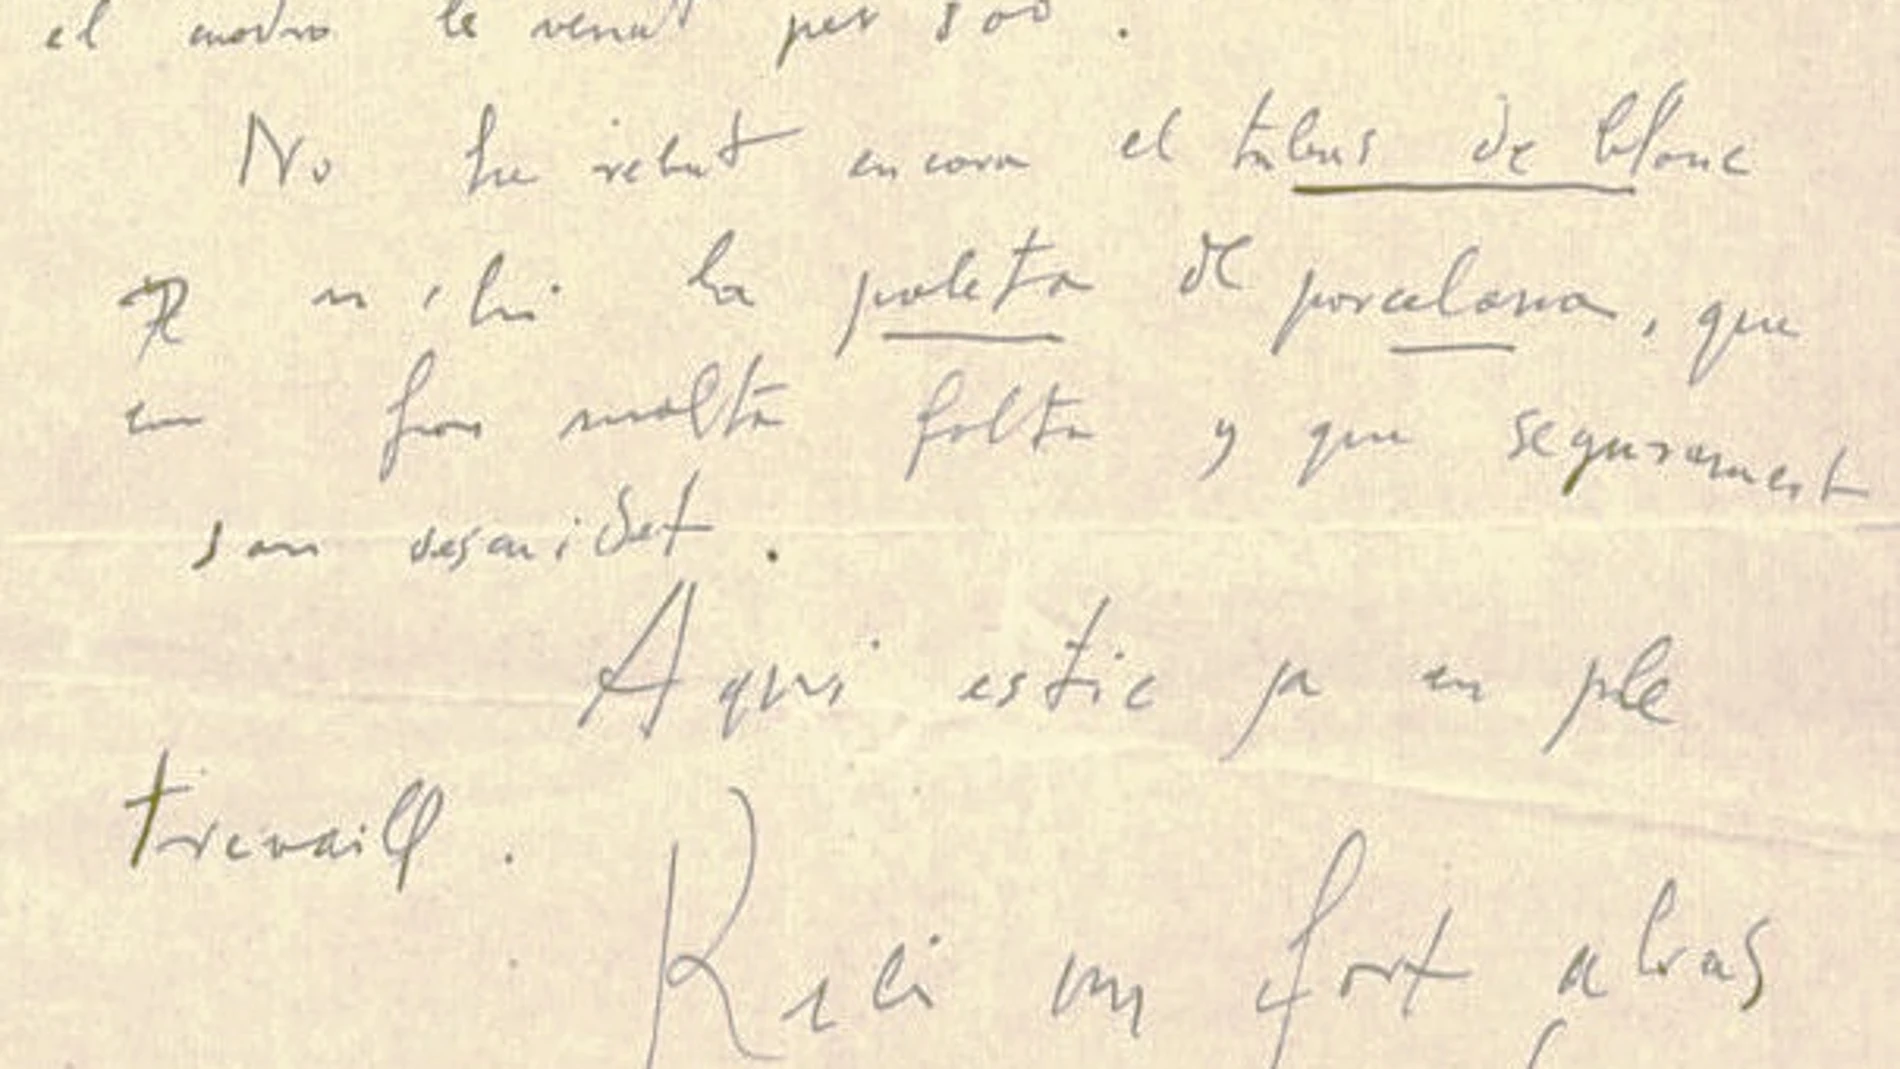 el cuadro le venut per
No he rebut encora el tubus de blanc
ni la paleta de porcelana, que
em fan molta falta y que segurament
s an descuidet .
Aqui estic ja en ple
trevaill .
Rebi un fort abras